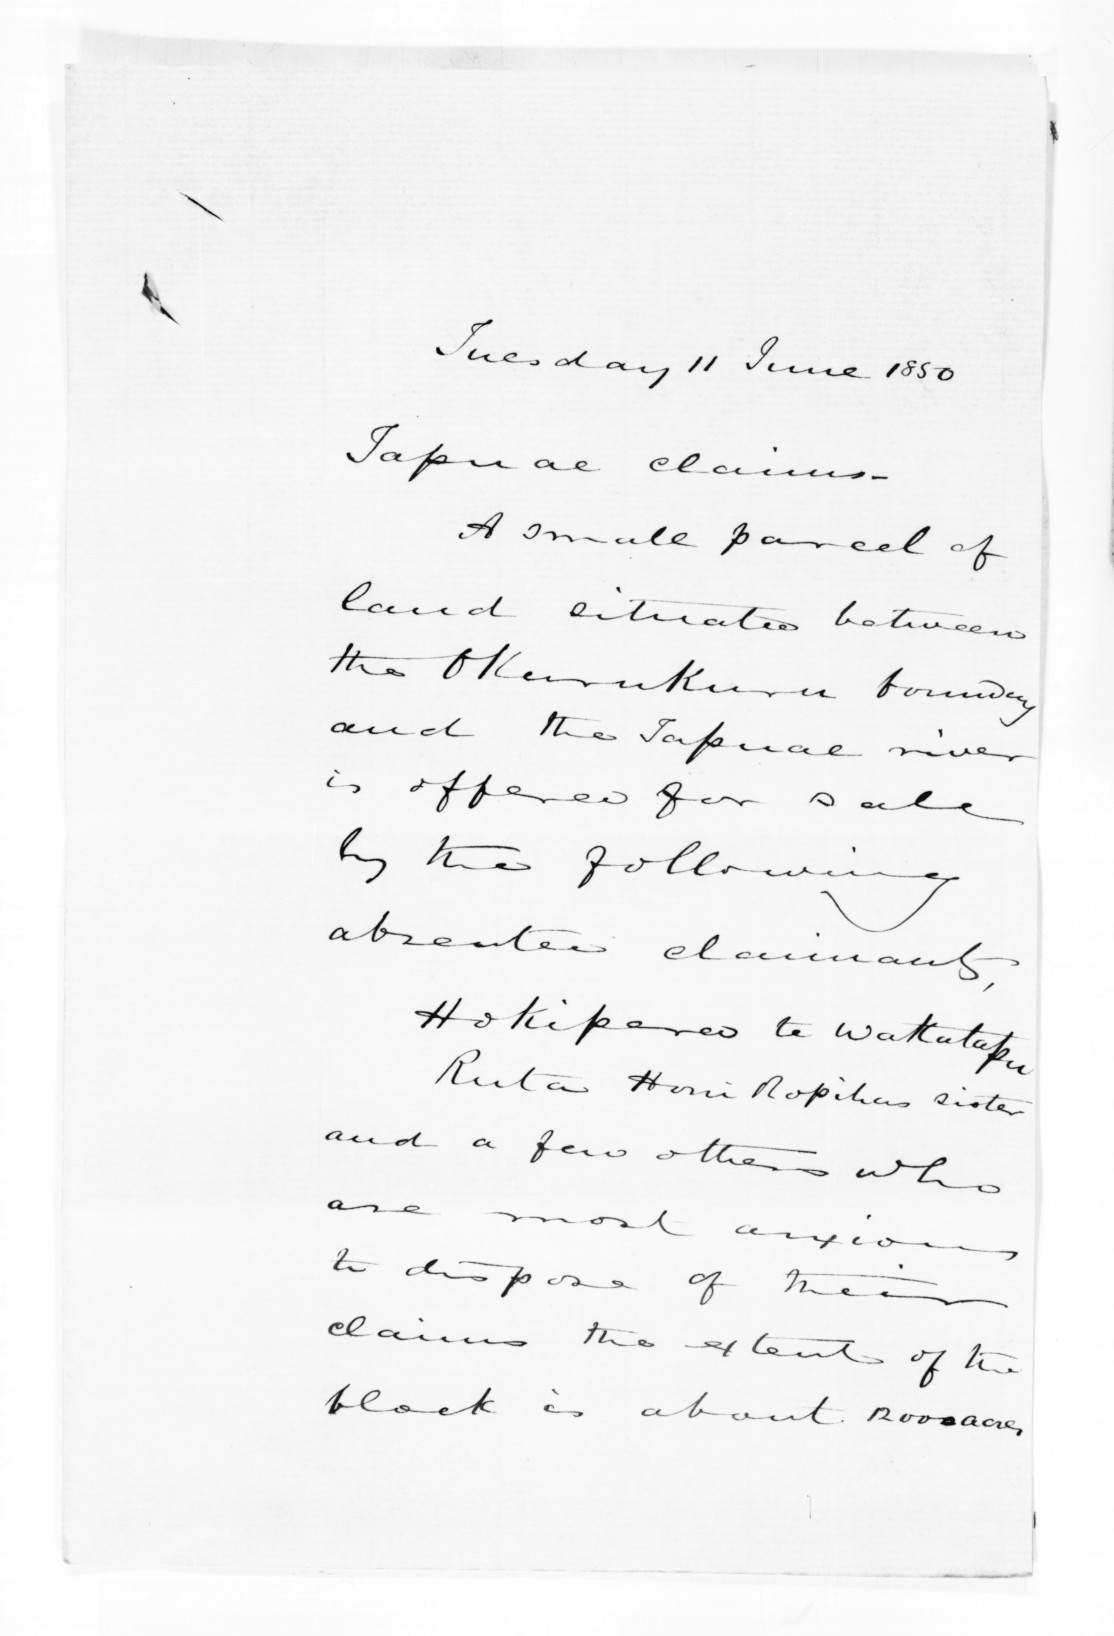 Tuesday 11 June 1850
Tapuae claims -
A small parcel of
land situated between
the OKurukuru bounday
and the Tapuae river
is offered for sale
by the following
absentee claimants,
Hokipared te Wakatapu
Ruta Honi Ropihas sister
and a few others who
are most anxious
to dispose of their
claims the extent of the
block is about acres